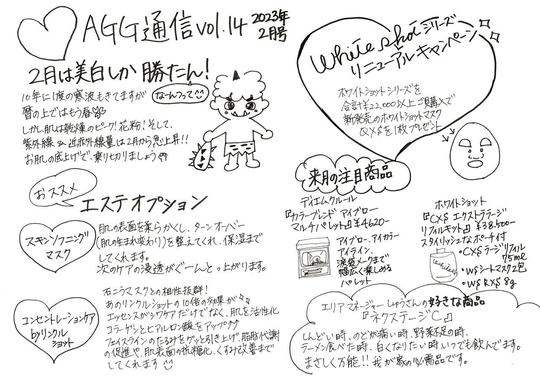 AGG通信 vol.14 2023年2月号
2月は美白しか勝たん!
なーんつって
10年に1度の寒波もきてますが
暦の上ではもう春
しかし肌は乾燥のピーク!花粉!そして、
紫外線 & 近赤外線量は2月から急上昇!!
お肌の底上げで、乗り切りましょう
White shotシリーズ
リニューアルキャンペーン
ホワイトショットシリーズを
合計¥22,000以上ご購入で
新発売のホワイトショットマスク
QXSを1枚プレゼント
おススメ
エステオプション
スキンソフニング
マスク
肌の表面を柔らかくし、ターンオーバー
(肌の生まれ変わり)を整えてくれ、保湿まで
してくれます。
次のケアの浸透がぐーんと上がります。
コンセントレーションケア
byリンクル
ショット
石こうマスクとの相性抜群!
あのリンクルショットの10倍の効果が
エッセンスがシワケアだけでなく、肌を活性化
コラーゲンとヒアルロン酸もアップ
フェイスラインのたるみをグッと引き上げ脂肪代謝
の促進や、肌表面の抗糖化、くすみ改善まで
してくれます
来月の注目商品
ディエムクルール
『カラーブレンド アイブロー
マルチパレット』¥4620-
アイブロー、アイカラー
アイライン、
涙袋メークまで
幅広く楽しめる
パレット
ホワイトショット
『CXS エクストラテージ
リフィルキット』¥38,500-
スタイリッシュなポーチ付
・CXSラージリフィル
75ml
・WSシートマスク2包
・WS RXS 8g
エリアマネージャーしゅうさんの好きな商品
『ネクステージC』
しんどい時、のどが痛い時、野菜不足の時、
ラーメン食べた時、白くなりたい時いつでも飲んでます。
まさしく万能!!我が家の必需品です。